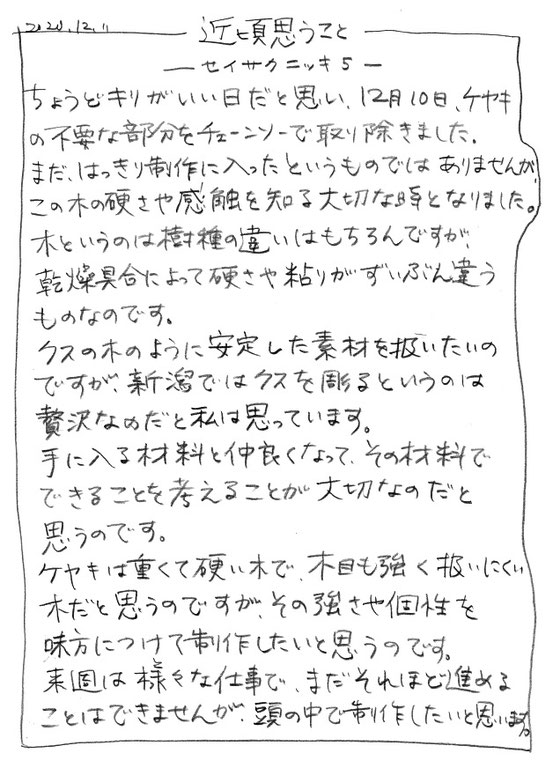 2020.12.11
近頃思うこと
ーセイサクニッキ5ー
ちょうどキリがいい日だと思い、12月10日、ケヤキ
の不要な部分をチェーンソーで取り除きました。
まだ、はっきり制作に入ったというものではありませんが、
この木の硬さや感触を知る大切な時となりました。
木というのは樹種の違いはもちろんですが、
乾燥具合によって硬さや粘りがずいぶん違う
ものなのです。
クスの木のように安定した素材を扱いたいの
ですが、新潟ではクスを彫るというのは
贅沢なのだと私は思っています。
手に入る材料と仲良くなって、その材料で
できることを考えることが大切なのだと
思うのです。
ケヤキは重くて硬い木で、木目も強く扱いにくい
木だと思うのですが、その強さや個性を
味方につけて制作したいと思うのです。
来週は様々な仕事で、まだそれほど進める
ことはできませんが、頭の中で制作したいと思います。